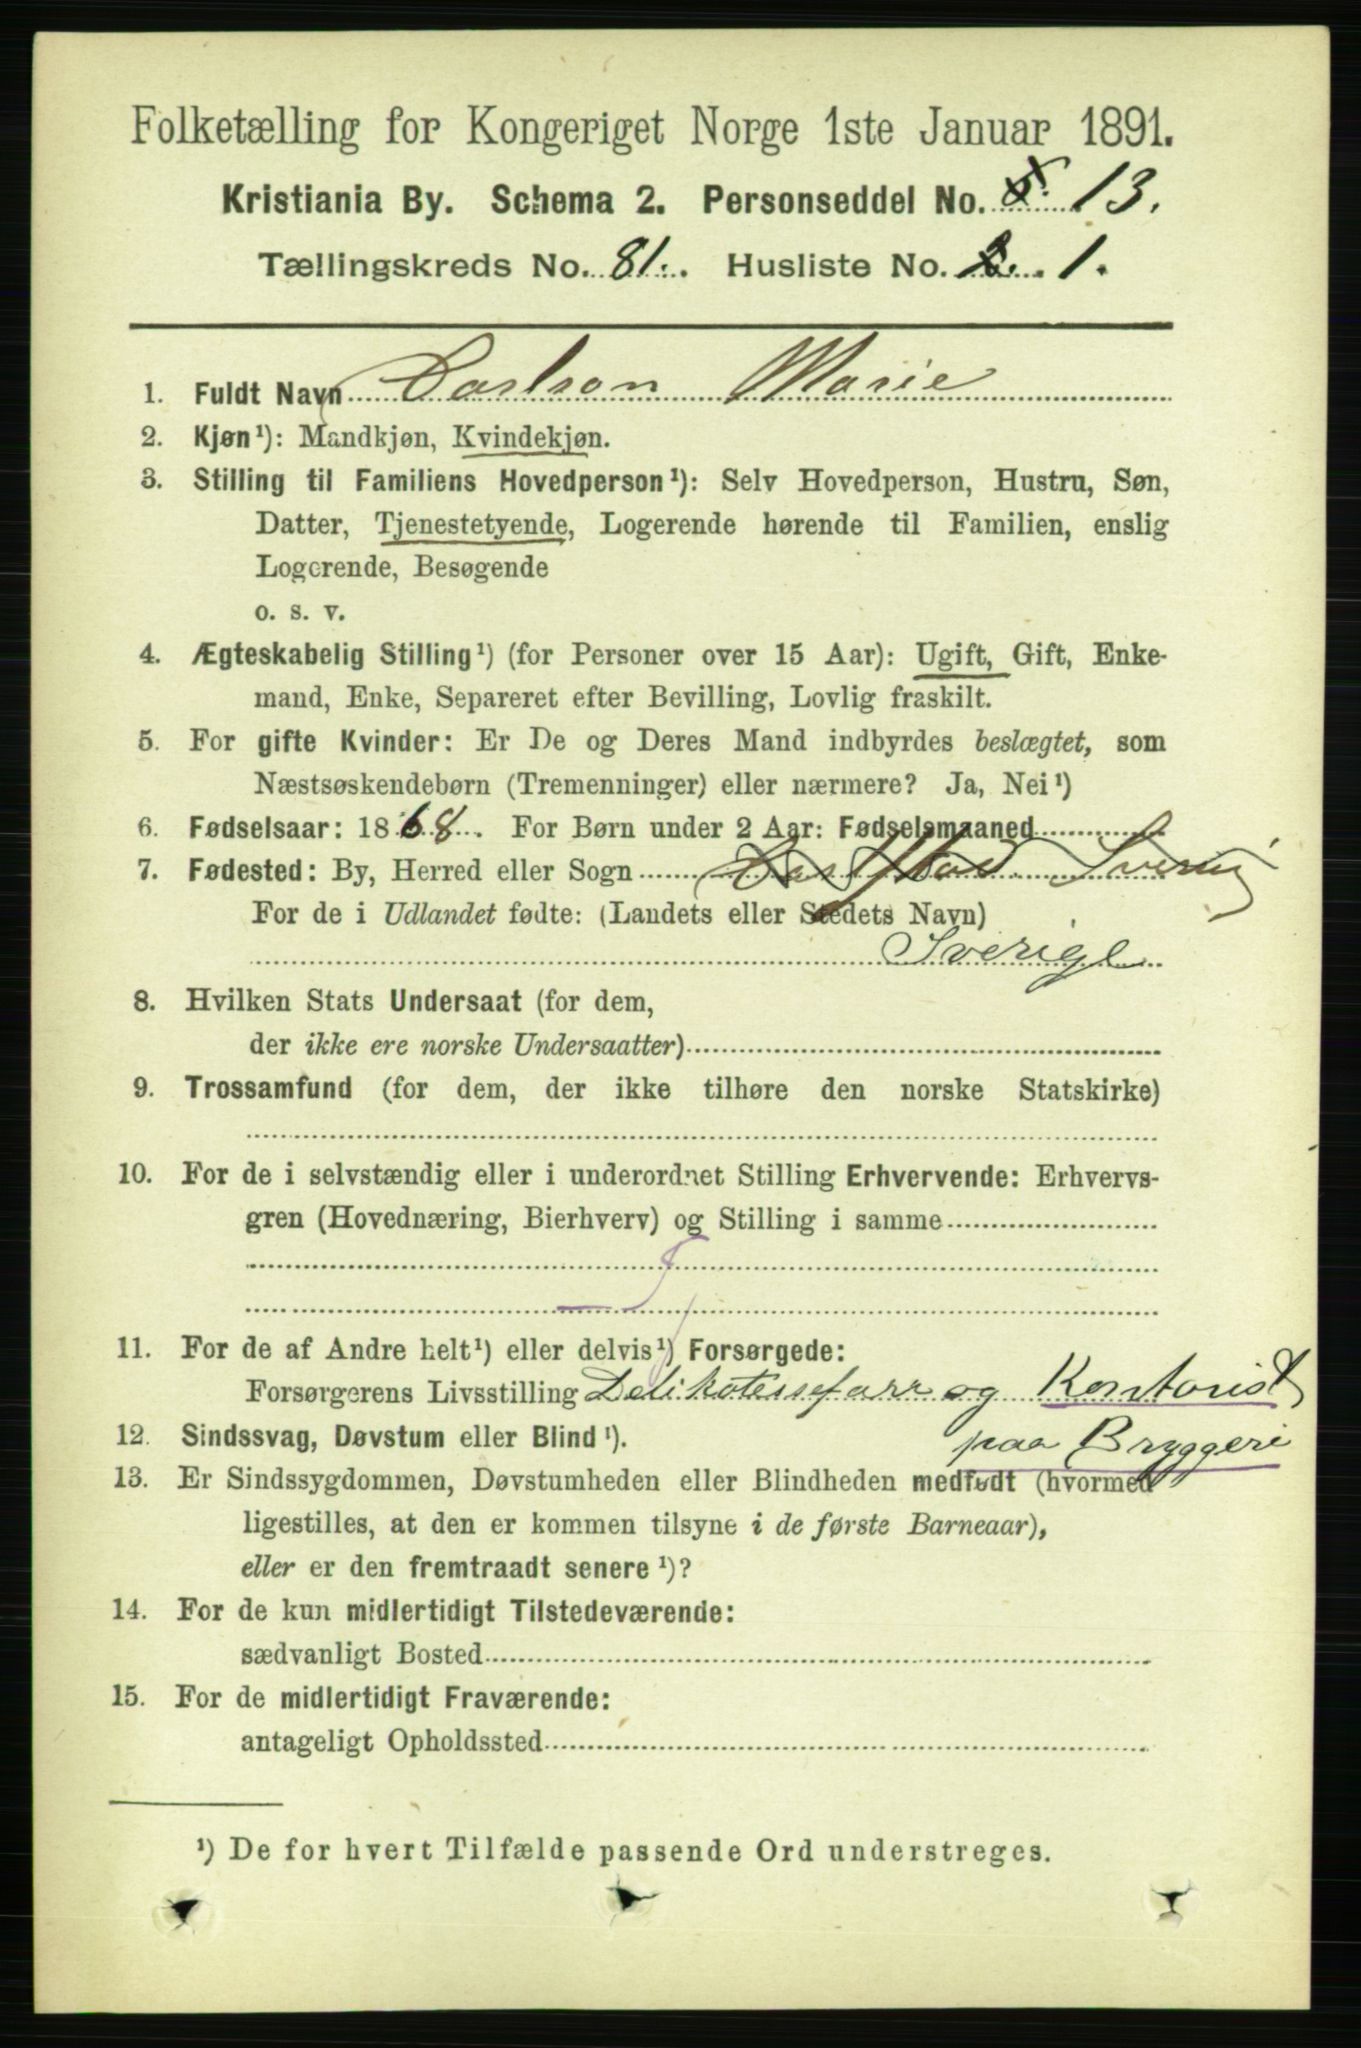 Folketælling for Kongeriget Norge 1ste Januar 1891.
Kristiania By. Schema 2. Personseddel No. 13.
Tællingskreds No. 81. Husliste No. 2. 1.
1. Fuldt Navn Carlson Marie
2. Kjøn¹): Mandkjøn, Kvindekjøn.
3. Stilling til Familiens Hovedperson¹): Selv Hovedperson, Hustru, Søn,
Datter, Tjenestetyende, Logerende hørende til Familien, enslig
Logerende, Besøgende
o. s. v.
4. Ægteskabelig Stilling¹) (for Personer over 15 Aar): Ugift, Gift, Enke-
mand, Enke, Separeret efter Bevilling, Lovlig fraskilt.
5. For gifte Kvinder: Er De og Deres Mand indbyrdes beslægtet, som
Næstsøskendebørn (Tremenninger) eller nærmere? Ja, Nei¹)
6. Fødselsaar: 1868. For Børn under 2 Aar: Fødselsmaaned
7. Fødested: By, Herred eller Sogn Carlstad Sverig
For de i Udlandet fødte: (Landets eller Stedets Navn)
Sverige
8. Hvilken Stats Undersaat (for dem,
der ikke ere norske Undersaatter)
9. Trossamfund (for dem, der ikke tilhøre den norske Statskirke)
10. For de i selvstændig eller i underordnet Stilling Erhvervende: Erhvervs-
gren (Hovednæring, Bierhverv) og Stilling i samme
11. For de af Andre helt¹) eller delvis¹) Forsørgede:
Forsørgerens Livsstilling Delikatesseforr og Kontorist
12. Sindssvag, Døvstum eller Blind¹). paa Bryggeri
13. Er Sindssygdommen, Døvstumheden eller Blindheden medfødt (hvormed
ligestilles, at den er kommen tilsyne i de første Barneaar),
eller er den fremtraadt senere¹)?
14. For de kun midlertidigt Tilstedeværende:
sædvanligt Bosted
15. For de midlertidigt Fraværende:
antageligt Opholdssted
¹) De for hvert Tilfælde passende Ord understreges.